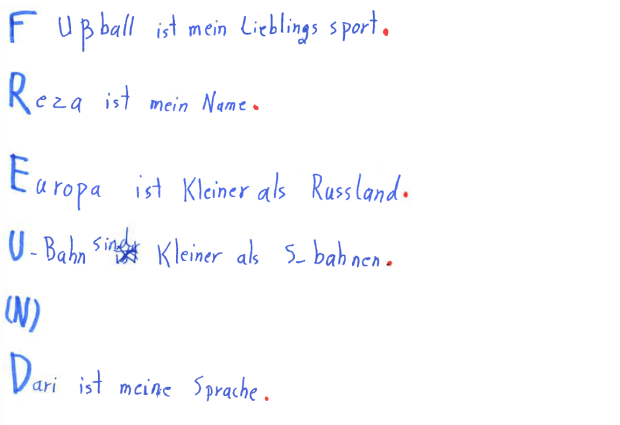 Fußball ist mein Lieblings sport.
Reza ist mein Name.
Europa ist Kleiner als Russland.
U-Bahn sind Kleiner als S-bahnen.
(N)
Dari ist meine Sprache.